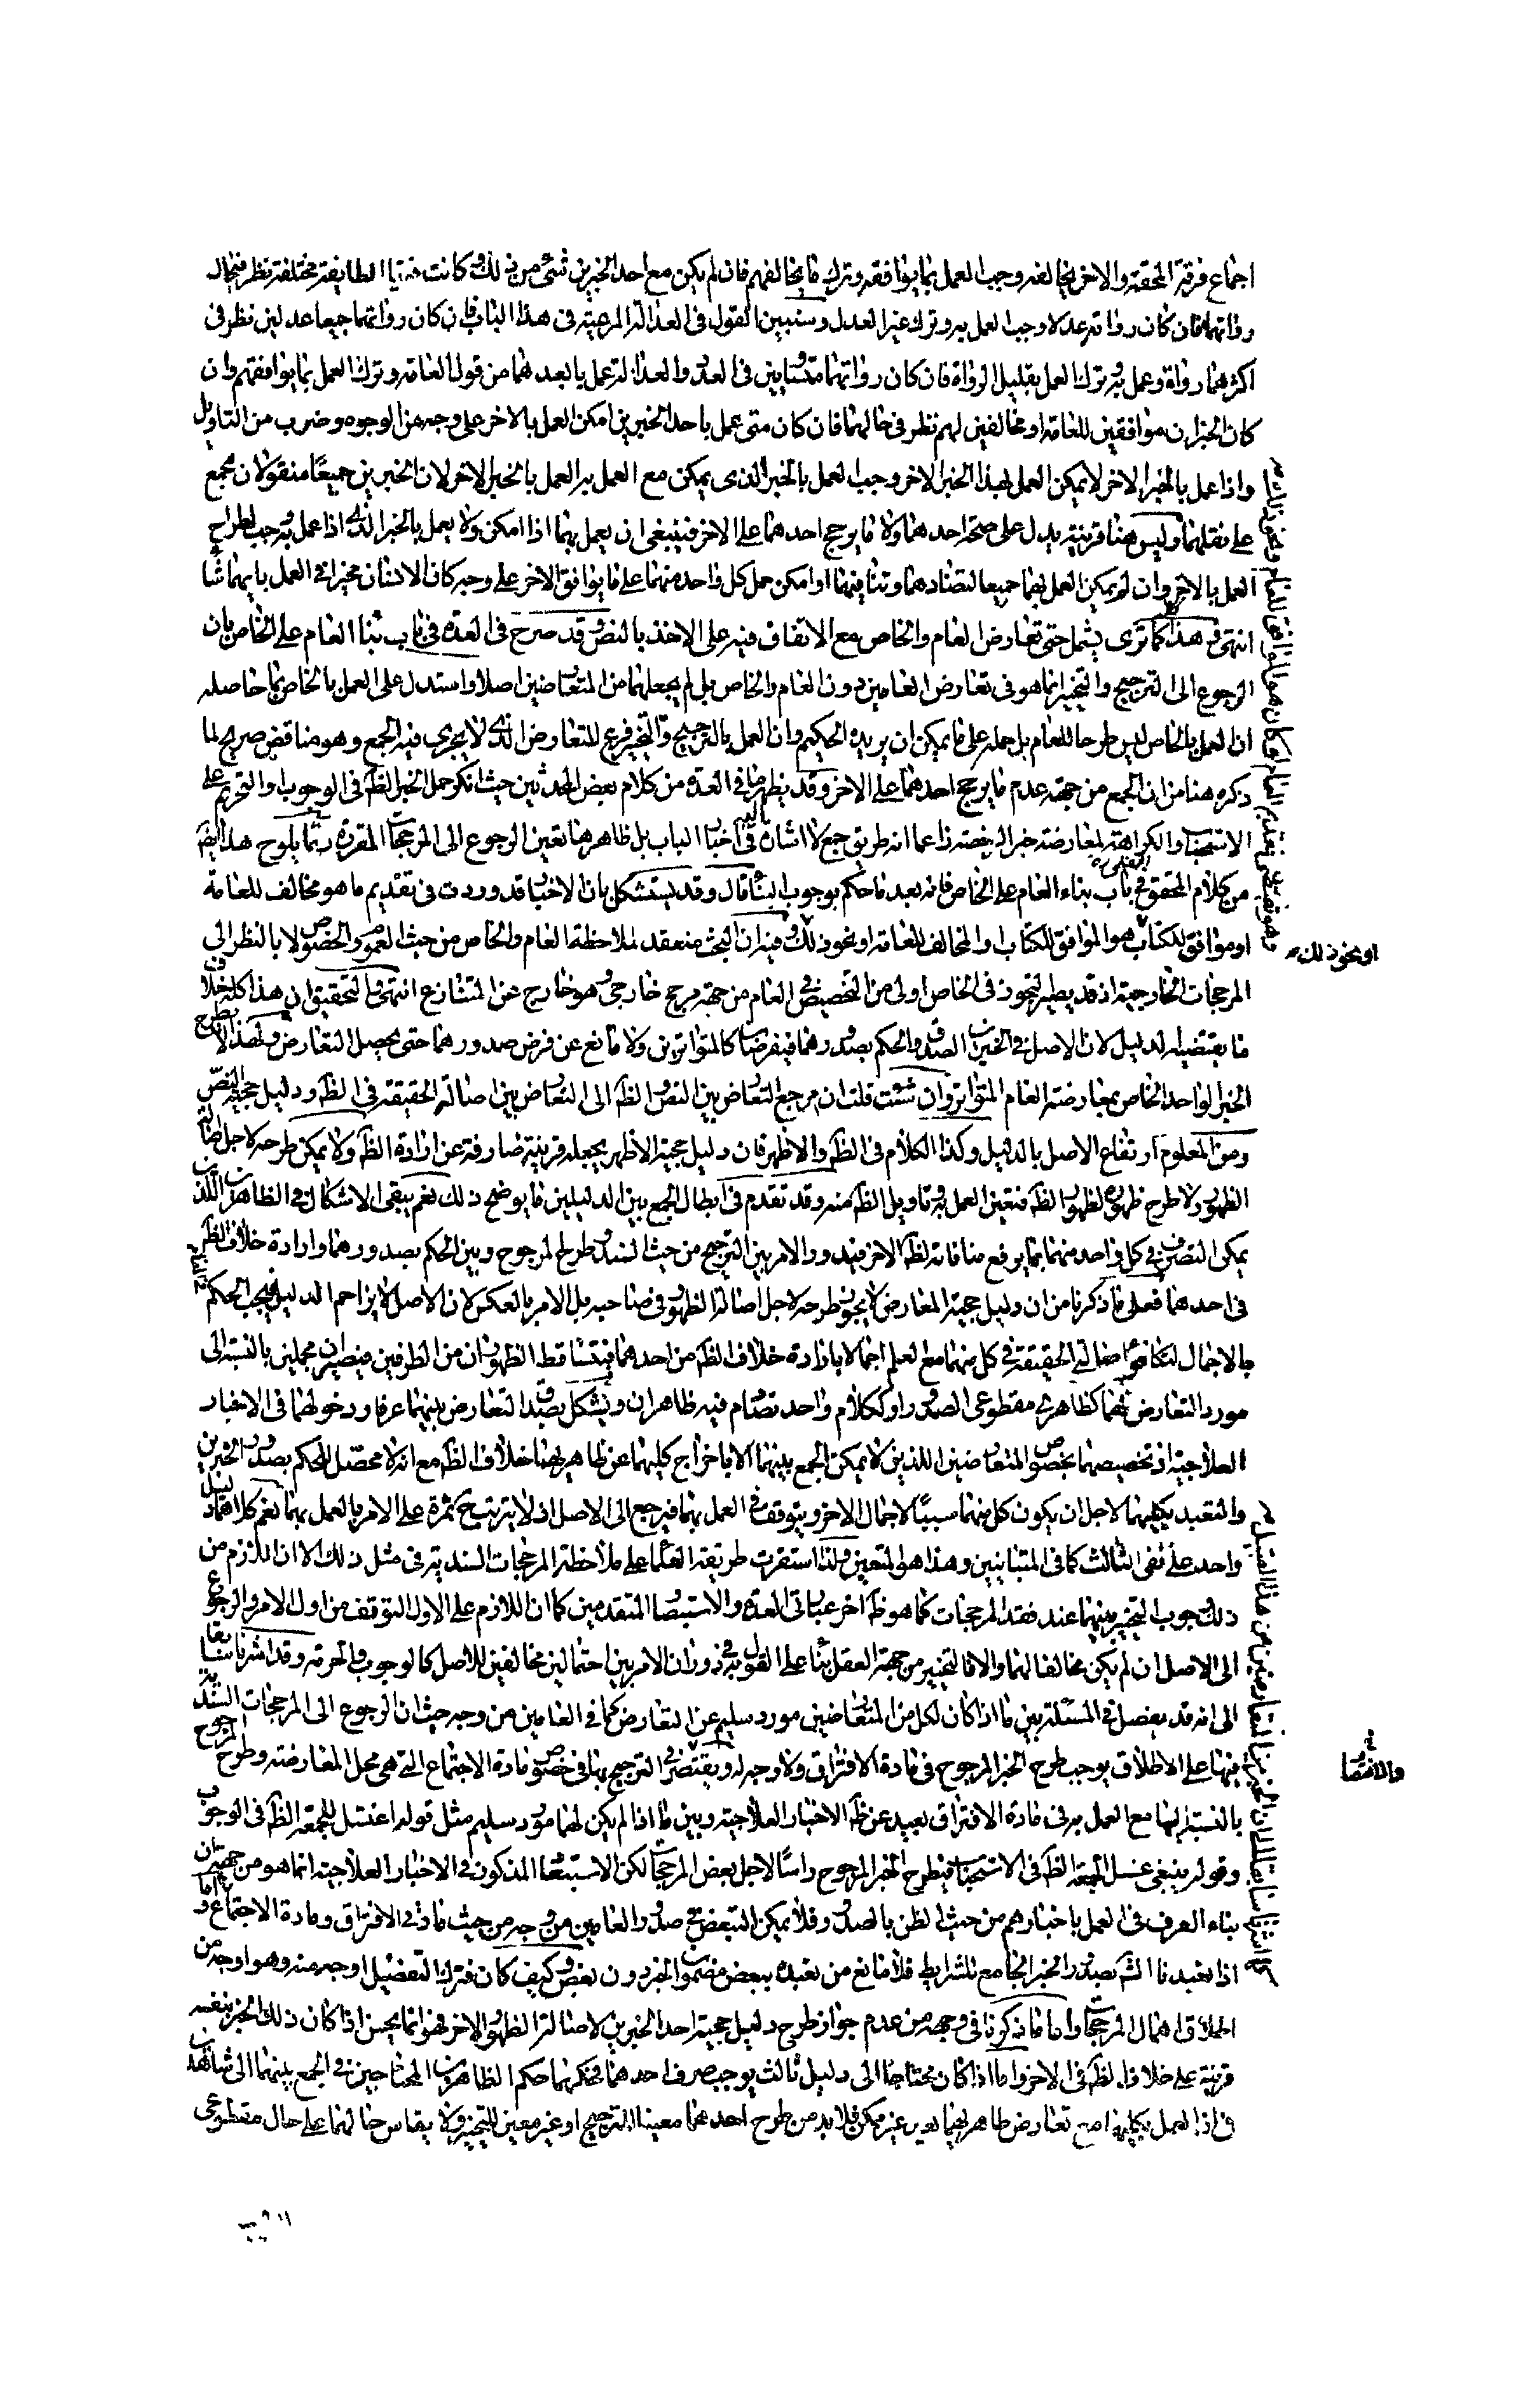 اجماع فرقة المحقة والاخر يخالفه وجب العمل بما يوافقه وترك ما يخالفهم فان لم يكن مع احد الخبرين شئ من ذلك وكانت فتيا الطايفة مختلفة نظر في حال
رواتهما فان كان رواته عدلا وجب العمل به وترك غير العدل وسنبين القول في العدالة المرعية في هذا الباب فان كان رواتهما جميعا عدلين نظر في
اكثرهما رواة وعمل به وترك العمل بقليل الرواة فان كان رواتهما متساويين في العدد والعدالة عمل بابعدهما من قول العامة وترك العمل بما يوافقهم وان
كان الخبران موافقين للعامة او مخالفين لهم نظر في حالهما فان كان متى عمل باحد الخبرين امكن العمل بالاخر على وجه من الوجوه وضرب من التاويل
واذا عمل بالخبر الاخر لا يمكن العمل بهذا الخبر الاخر وجب العمل بالخبر الذي يمكن مع العمل به العمل بالخبر الاخر لان الخبرين جميعا منقولان مجمع
على نقلهما وليس هنا قرينة يدل على صحة احدهما ولا ما يرجح احدهما على الاخر فينبغي ان يعمل بهما اذا امكن ولا يعمل بالخبر الذي اذا عمل به وجب اطراح
العمل بالاخر وان لم يمكن العمل بهما جميعا لتضادهما وتنافيهما او امكن حمل كل واحد منهما على ما يوافق الاخر على وجه كان الانسان مخيرا في العمل بايهما شاء
انتهى وهذا كما ترى يشمل حتى تعارض العام والخاص مع الاتفاق فيه على الاخذ بالنص وقد صرح في العدة في باب بناء العام على الخاص بان
الرجوع الى الترجيح والتخيير انما هو في تعارض العامين دون العام والخاص بل لم يجعلهما من المتعارضين اصلا واستدل على العمل بالخاص بما حاصله
ان العمل بالخاص ليس طرحا للعام بل حمله على ما يمكن ان يريده الحكيم وان العمل بالترجيح والتخيير فرع للتعارض الذي لا يجري فيه الجمع وهو مناقض صريح لما
ذكره هنا من ان الجمع من جهة عدم ما يرجح احدهما على الاخر وقد يظهر ما في العدة من كلام بعض المحدثين حيث انكر حمل الخبر الظ في الوجوب او التحريم على
الاستحباب والكراهة لمعارضة خبر الرخصة زاعما انه طريق جمع لا اشارة اليه في اخبار الباب بل ظاهرها تعين الرجوع الى المرجحات المقررة ربما يلوح هذا ايضا
من كلام المحقق القمي ره في باب بناء العام على الخاص فانه بعد ما حكم بوجوب البناء قال وقد يستشكل بان الاخبار قد وردت في تقديم ما هو مخالف للعامة
او موافق للكتاب
او نحو ذلك
وهو يقتضي تقديم العام لو كان هو الموافق للكتاب او المخالف للعامة او نحو ذلك وفيه ان البحث منعقد لملاحظة العام والخاص من حيث العموم والخصوص لا بالنظر الى
المرجحات الخارجية اذ قد يصير التجوز في الخاص اولى من التخصيص في العام من جهة مرجح خارجي وهو خارج عن المتنازع انتهى والتحقيق ان هذا كله خلاف
ما يقتضيه الدليل لان الاصل في الخبرين الصدق والحكم بصدورهما فيفرضان كالمتواترين ولا مانع عن فرض صدورهما حتى يحصل التعارض ولهذا لا يطرح
الخبر الواحد الخاص بمعارضة العام المتواتر وان شئت قلت ان مرجع التعارض بين النص والظ الى التعارض بين اصالة الحقيقة في الظ ودليل حجية النص
ومن المعلوم ارتفاع الاصل بالدليل وكذا الكلام في الظ والاظهر فان دليل حجية الاظهر يجعله قرينة صارفة عن ارادة الظ ولا يمكن طرحه لاجل اصالة
الظهور ولا طرح ظهوره لظهور الظ فتعين العمل به وتاويل الظ منه وقد تقدم في ابطال الجمع بين الدليلين ما يوضح ذلك نعم يبقى الاشكال في الظاهرين اللذين
يمكن التصرف في كل واحد منهما بما يرفع منافاته لظ الاخر فيدور الامر بين الترجيح من حيث السند وطرح المرجوح وبين الحكم بصدورهما وارادة خلاف الظ
في احدهما فعلى ما ذكرنا من ان دليل حجية المعارض لا يجوز طرحه لاجل اصالة الظهور في صاحبه بل الامر بالعكس لان الاصل لا يزاحم الدليل يجب الحكم
بالاجمال لتكافؤ اصالتي الحقيقة في كل منهما مع العلم اجمالا بارادة خلاف الظ من احدهما فيتساقط الظهوران من الطرفين فيصيران مجملين بالنسبة الى
مورد التعارض فهما كظاهري مقطوعي الصدور او ككلام واحد تصادم فيه ظاهران ويشكل بصدق التعارض بينهما عرفا ودخولهما في الاخبار
العلاجية اذ تخصيصها بخصوص المتعارضين اللذين لا يمكن الجمع بينهما الا باخراج كليهما عن ظاهرهما خلاف الظ مع انه لا محصل للحكم بصدور الخبرين
والتعبد بكليهما لاجل ان يكون كل منهما سببا لاجمال الاخر ويتوقف في العمل بهما فيرجع الى الاصل اذ لا يترتب ح ثمرة على الامر بالعمل بهما نعم كلاهما دليل
واحد على نفي الثالث كما في المتباينين وهذا هو المتعين ولذا استقرت طريقة العلماء على ملاحظة المرجحات السندية في مثل ذلك الا ان اللازم من
ذلك وجوب التخيير بينهما عند فقد المرجحات كما هو ظ اخر عبارتي العدة والاستبصار المتقدمين كما ان اللازم على الاول التوقف من اول الامر والرجوع
الى الاصل ان لم يكن مخالفا لهما والا فالتخيير من جهة العقل بناء على القول به في دوران الامر بين احتمالين مخالفين للاصل كالوجوب والحرمة وقد اشرنا سابقا
الى انه قد يفصل في المسئلة بين ما اذا كان لكل من المتعارضين مورد سليم عن التعارض كما في العامين من وجه حيث ان الرجوع الى المرجحات السندية
فيهما على الاطلاق يوجب طرح الخبر المرجوح في مادة الافتراق ولا وجه له
والاقتصار في
الترجيح بها في خصوص مادة الاجتماع التي هي محل المعارضة وطرح المرجوح
بالنسبة اليها مع العمل به في مادة الافتراق بعيد عن ظ الاخبار العلاجية وبين ما اذا لم يكن لهما مورد سليم مثل قوله اغتسل للجمعة الظ في الوجوب
وقوله ينبغي غسل الجمعة الظ في الاستحباب فيطرح الخبر المرجوح راسا لاجل بعض المرجحات لكن الاستبعاد المذكور في الاخبار العلاجية انما هو من جهة ان
بناء العرف في العمل باخبارهم من حيث الظن بالصدور فلا يمكن التبعض في صدور العامين من وجه من حيث مادتي الافتراق ومادة الاجتماع
اذا تعبدنا الش بصدور الخبر الجامع للشرايط فلا مانع من تعبده ببعض مضمون الخبر دون بعض وكيف كان فترك التفصيل اوجه منه وهو اوجه من
اطلاق اهمال المرجحات واما ما ذكرنا في وجهه من عدم جواز طرح دليل حجية احد الخبرين لاصالة الظهور الاخر فهو انما يحسن اذا كان ذلك الخبر بنفسه
قرينة على خلاف الظ في الاخر واما اذا كان محتاجا الى دليل ثالث يوجب صرف احدهما فحكمهما حكم الظاهرين المحتاجين في الجمع بينهما الى شاهدين
في ان العمل بكليهما مع تعارض ظاهريهما غير ممكن فلا بد من طرح احدهما معينا للترجيح او غير معين للتخيير ولا يقاس حالهما على حال مقطوعي